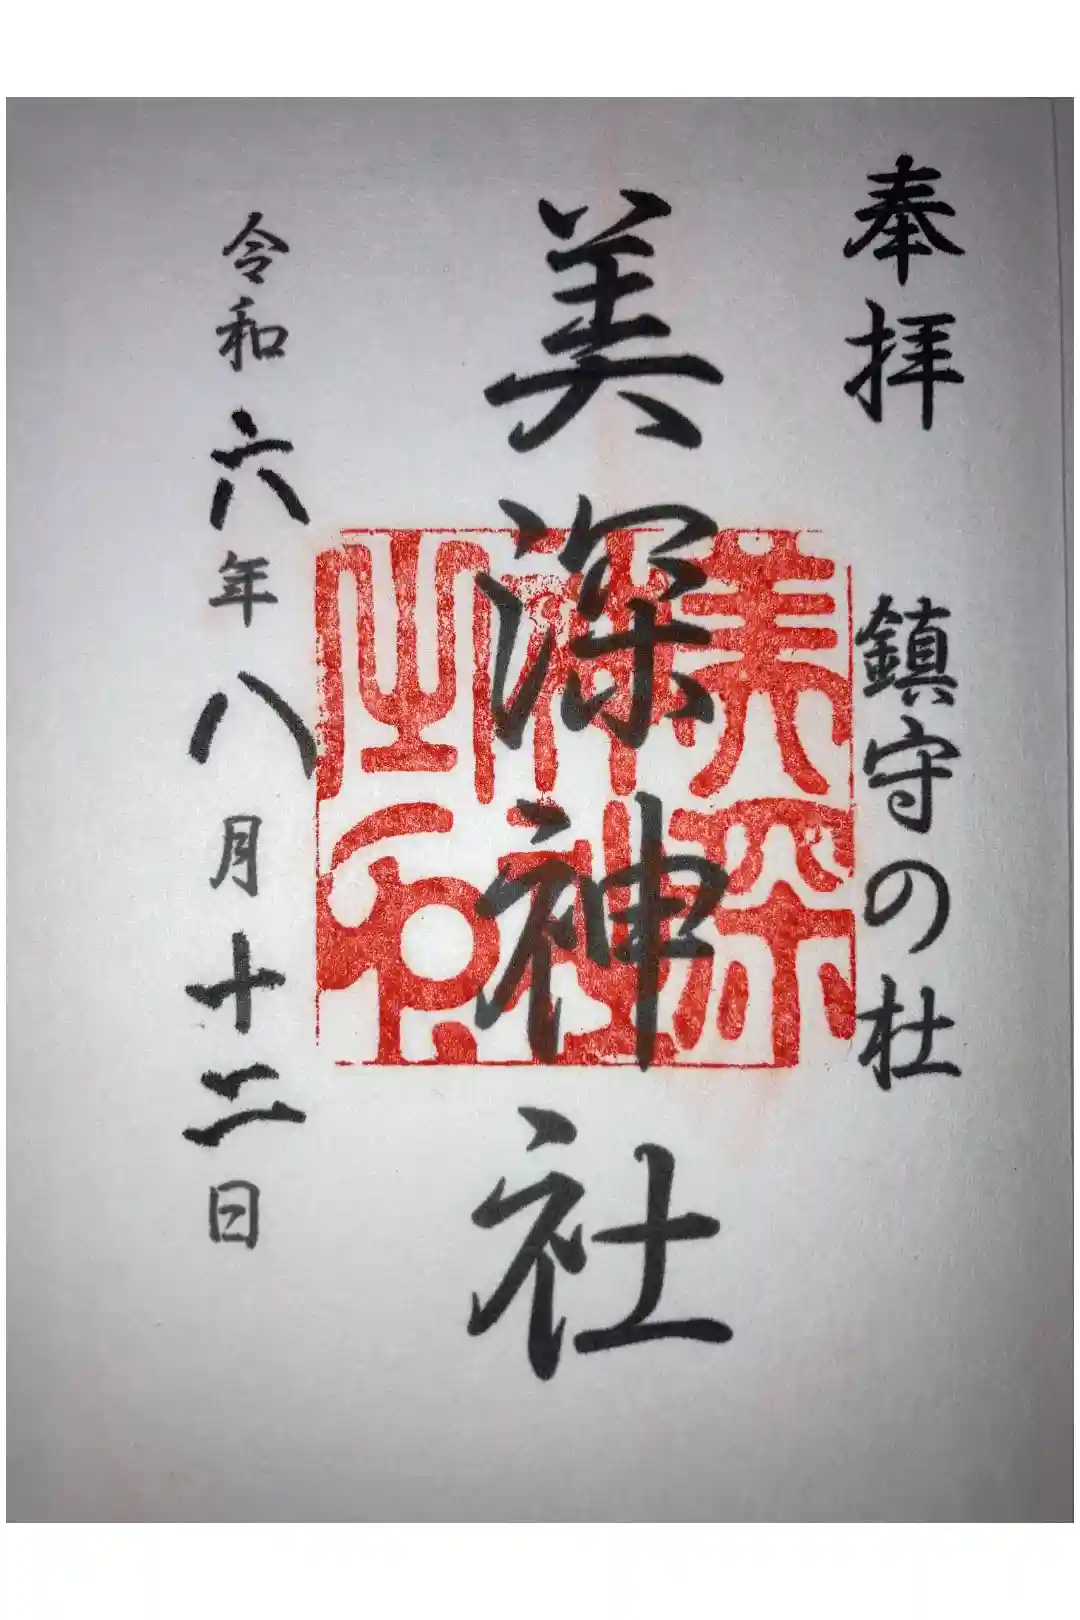 奉拝 鎮守の杜
美深神社
美深
神社
之印
令和六年八月十二日